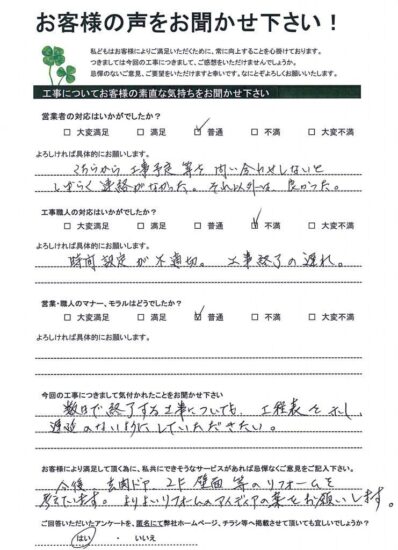 お客様の声をお聞かせ下さい！
私どもはお客様によりご満足いただくために、常に向上することを心掛けております。
つきましては今回の工事につきまして、ご感想をいただけませんでしょうか。
忌憚のないご意見、ご要望をいただけますと幸いです。なにとぞよろしくお願いいたします。
工事についてお客様の素直な気持ちをお聞かせ下さい
営業者の対応はいかがでしたか？
□ 大変満足 □ 満足 ☑ 普通 □ 不満 □ 大変不満
よろしければ具体的にお願いします。
こちらから工事予定等を問い合わせしないと
しばらく連絡がなかった。それ以外は良かった。
工事職人の対応はいかがでしたか？
□ 大変満足 □ 満足 □ 普通 ☑ 不満 □ 大変不満
よろしければ具体的にお願いします。
時間設定が不適切。工事終了の遅れ。
営業・職人のマナー、モラルはどうでしたか？
□ 大変満足 □ 満足 ☑ 普通 □ 不満 □ 大変不満
よろしければ具体的にお願いします。
今回の工事につきまして気付かれたことをお聞かせ下さい
数日で終了する工事についても、工程表を示し、
遅延のないようにしていただきたい。
お客様により満足して頂く為に、私共にできそうなサービスがあれば忌憚なくご意見をご記入下さい。
今後、玄関ドア、2F壁面等のリフォームを
考えています。よりよいリフォームのアイディアの案をお願いします。
ご回答いただいたアンケートを、匿名にて弊社ホームページ、チラシ等へ掲載させて頂いても宜しいでしょうか？
はい ・ いいえ